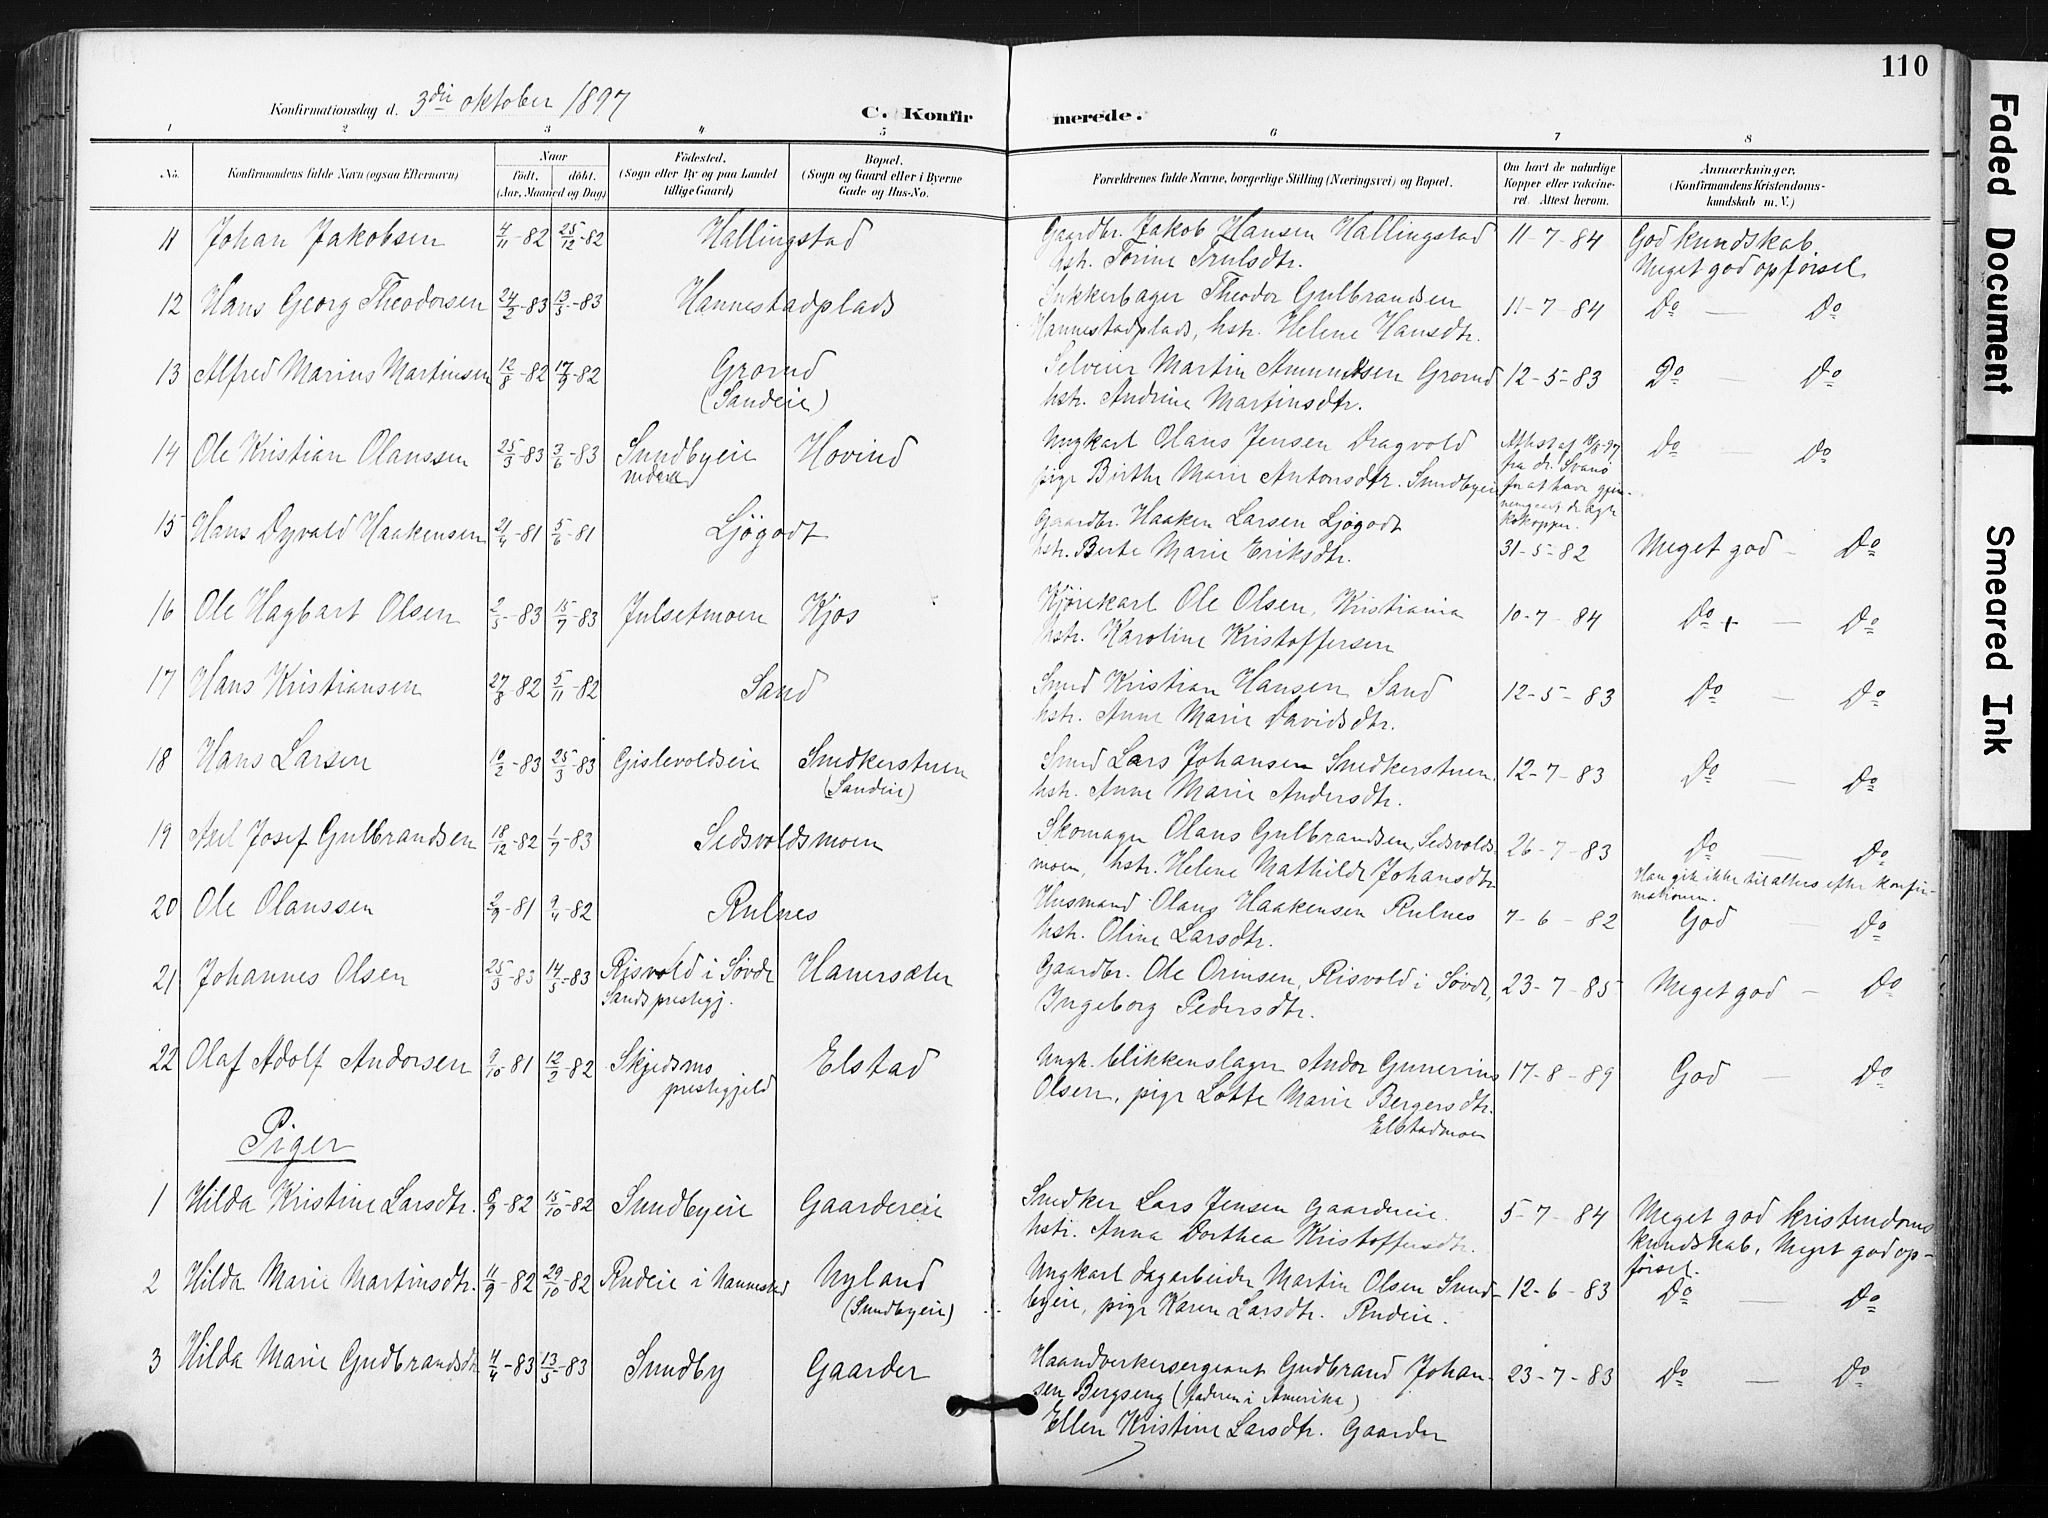 110
Faded Document
Smeared Ink
Konfirmationsdag d. 3die oktober 1897
C. Konfirmerede.
1 2 3 4 5 6 7 8
No.
Konfirmandens fulde Navn (ogsaa Efternavn)
Naar
födt. döbt.
(Aar, Maaned og Dag)
Födested.
(Sogn eller By og paa Landet
tillige Gaard)
Bopæl.
(Sogn og Gaard eller i Byerne
Gade og Hus-No.
Forældrenes fulde Navne, borgerlige Stilling (Næringsvei) og Bopæl.
Om havt de naturlige
Kopper eller vakcine-
ret. Attest herom.
Anmærkninger.
(Konfirmandens Kristendoms-
kundskab m. V.)
11 Johan Jakobsen 4/11-82 25/12-82 Hallingstad Gaardbr. Jakob Hansen Hallingstad 11-7-84 God kundskab
hstr. Torine Trulsdtr. Meget god opførsel
12 Hans Georg Theodorsen 24/2-83 13/5-83 Hannestadplads Sukkerbager Theodor Gulbrandsen 11-7-84 Do — Do
Hannestadplads, hstr. Helene Hansdtr.
13 Alfred Marius Martinsen 12/8-82 17/9-82 Grorud Selveier Martin Amundsen Grorud 12-5-83 Do — Do
(Sandeie) hstr. Andrine Martinsdtr.
14 Ole Kristian Olanssen 25/3-83 3/6-83 Sundbyeie Hovind Ungkarl Olans Jensen Dragvold Do — Do
nedre pige Birthe Marie Antonsdtr. Sundbyeie
fra dr. Svanø
for at have gjen-
nemgaaet de ægte
kokopper.
15 Hans Dyvald Haakensen 21/4-81 5/6-81 Ljøgodt Gaardbr. Haaken Larsen Ljøgodt
hstr. Berte Marie Eriksdtr. 31-5-82 Meget god — Do
16 Ole Hagbart Olsen 2/5-83 15/7-83 Julsetmoen Kjos Kjørekarl Ole Olsen, Kristiania 10-7-84 Do — Do
hstr. Karoline Kristoffersen
17 Hans Kristiansen 27/8-82 5/11-82 Sand Smed Kristian Hansen Sand 12-5-83 Do — Do
hstr. Anne Marie Davidsdtr.
18 Hans Larsen 19/2-83 25/3-83 Gislevoldseie Snedkerstuen Smed Lars Johansen Snedkerstuen 12-7-83 Do — Do
(Sandeie) hstr. Anne Marie Andersdtr.
19 Axel Josef Gulbrandsen 18/12-82 1/7-83 Sedsvoldsmoen Skomager Olans Gulbrandsen, Sedsvolds- 26-7-83 Do — Do
moen, hstr. Helene Mathilde Johansdtr. Han gik ikke til alters efter konfir-
mationen.
20 Ole Olanssen 2/9-81 9/4-82 Rulnes Husmand Olans Haakensen Rulnes 7-6-82 God — Do
hstr. Oline Larsdtr.
21 Johannes Olsen 25/3-83 14/5-83 Risvold i Søvde Hanersæter Gaardbr. Ole Orinsen, Risvold i Søvde, 23-7-85 Meget god — Do
Sands prestegj. Ingeborg Pedersdtr.
22 Olaf Adolf Andorsen 9/10-81 12/2-82 Skjedsmo Elstad Ungk. blikkenslager Andor Gunerius 17-8-89 God — Do
prestegjeld Olsen, pige Lotte Marie Bergersdtr.
Elstadmoen
Piger
1 Hilda Kristine Larsdtr. 8/9-82 15/10-82 Sundbyeie Gaardereie Snedker Lars Jensen Gaardereie 5-7-84 Meget god kristendoms
hstr. Anna Dorthea Kristoffersdtr. kundskab, Meget god op-
førsel.
2 Hilda Marie Martinsdtr. 11/9-82 29/10-82 Rudeie i Nannestad Nyland Ungkarl dagarbeider Martin Olsen Sund- 12-6-83 Do — Do
(Sundbyeie) byeie, pige Karen Larsdtr. Rudeie.
3 Hilda Marie Gudbrandsdtr 4/4-83 13/5-83 Sundby Gaarder Haandverkersergeant Gudbrand Johan- 23-7-83 Do — Do
sen Bergseng (faderen i Amerika)
Ellen Kristine Larsdtr. Gaarder